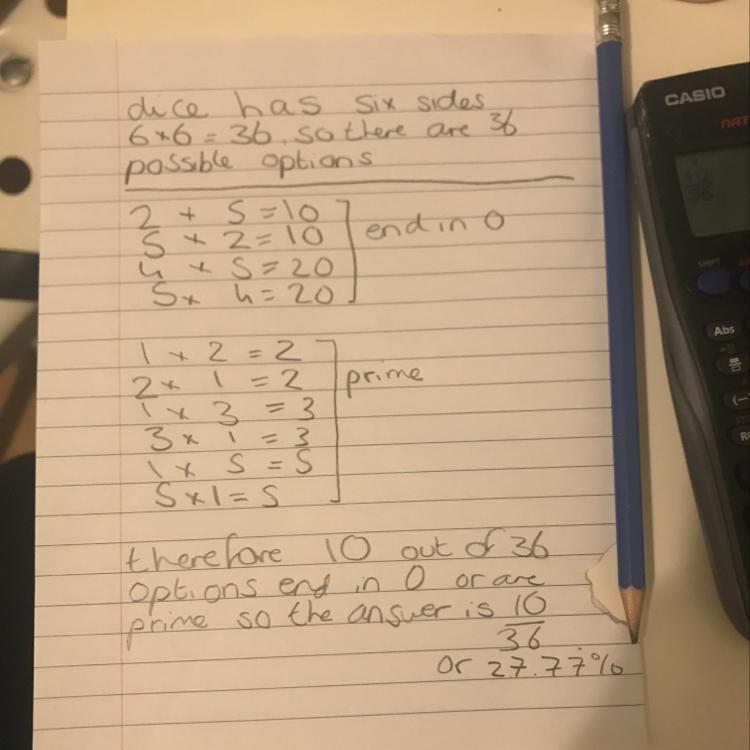 dice has six sides
6×6 = 36, so there are 36
possible options
2 + 5 = 10
5 × 2 = 10
4 × 5 = 20
5 × 4 = 20
end in 0
1 × 2 = 2
2 × 1 = 2
1 × 3 = 3
3 × 1 = 3
1 × 5 = 5
5 × 1 = 5
prime
therefore 10 out of 36
options end in 0 or are
prime so the answer is 10
36
or 27.77%
CASIO
NAT
10
36
SHIFT
Abs
(-